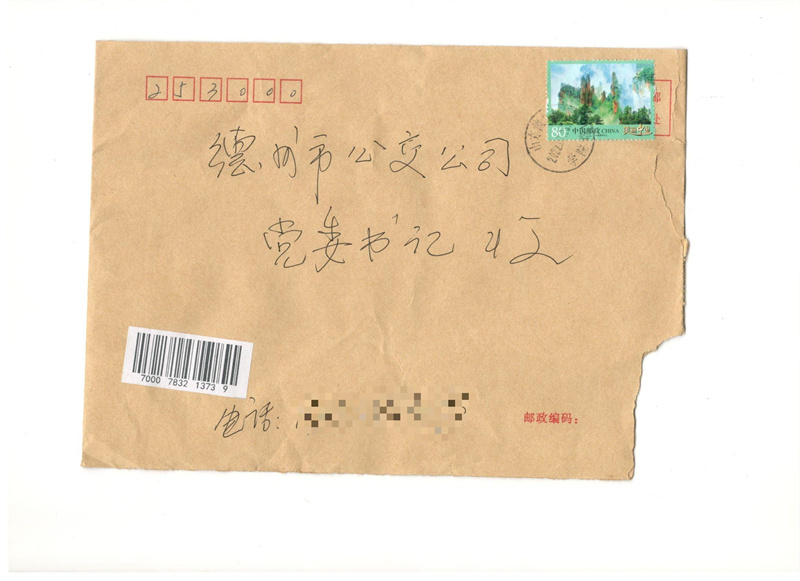 253000
80分 中国邮政 CHINA
德州市公交公司
党委书记 收
7000 7832 1373 9
电话:
邮政编码: